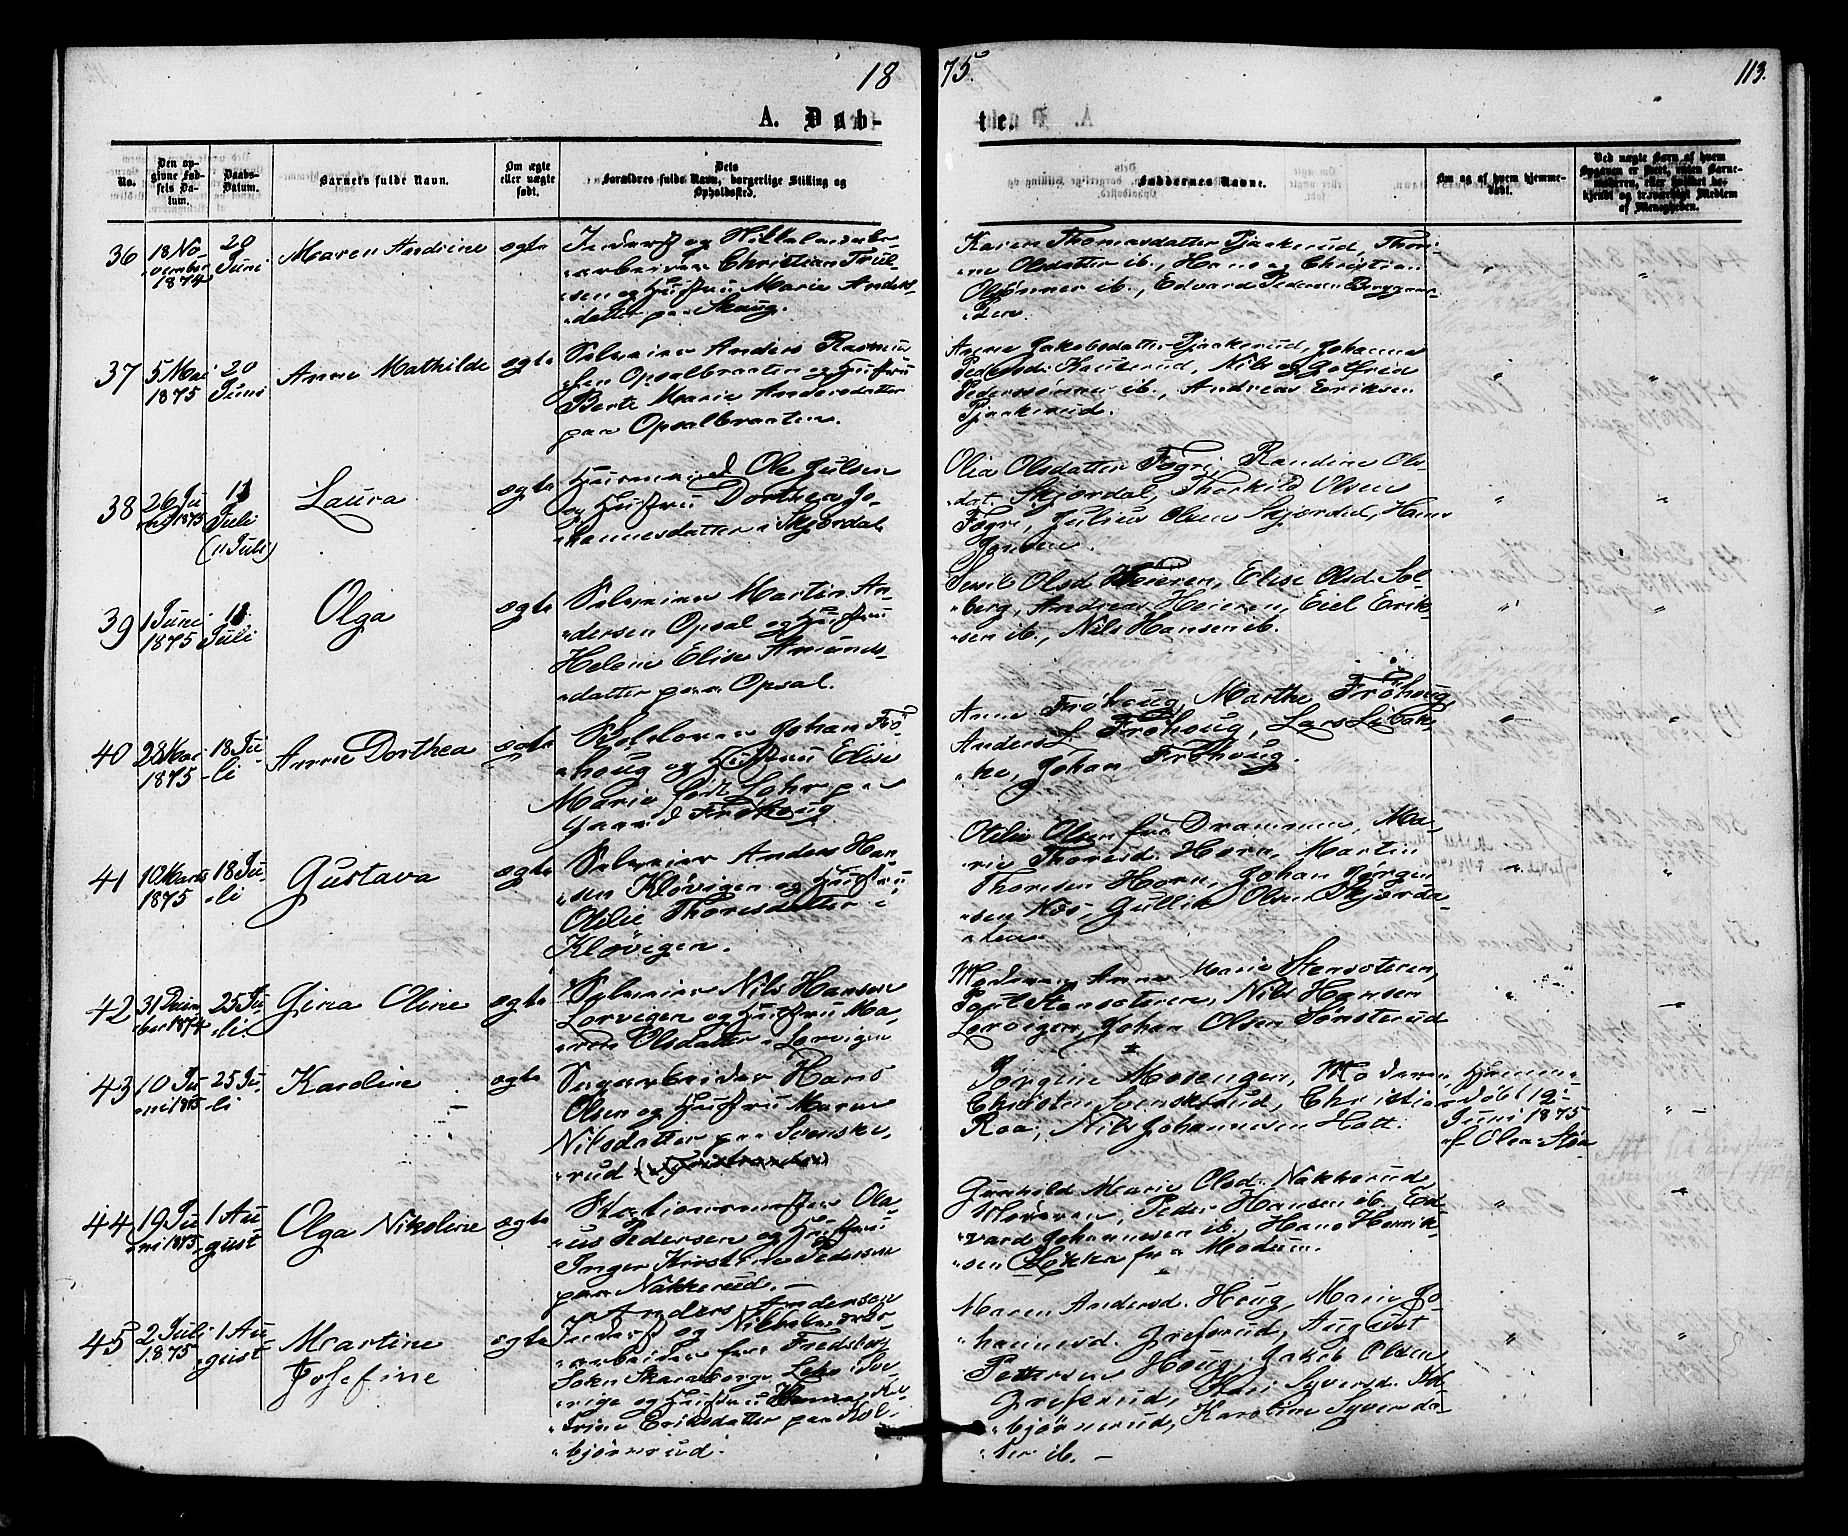 18 75. 113.
A. Døb- te.
No.
Den op-
givne Fød-
sels Da-
tum.
Daabs-
Datum.
Barnets fulde Navn.
Om ægte
eller uægte
født.
Dets
Forældres fulde Navn, borgerlige Stilling og
Opholdssted.
Faddernes Navne.
Om og af hvem hjemme-
døbt.
Ved uægte Børn af hvem
Opgaven er skeet, uden Barne-
moderen, eller hvilket be-
kjendt og troværdigt Medlem
af Menigheden.
36
18 No-
vember
1874
20
Juni
Maren Andrine
ægte
Inderst og
arbeider Christian Truls-
sen og Hustru Marie Anders-
datter paa Skaug.
Karen Thomasdatter Pjaakerud, Thori-
ne Olsdatter ib., Hans og Christian
Olsønner ib., Edvard Pedersen Bryggar-
den.
"
"
37
5 Mai
1875
20
Juni
Anne Mathilde
ægte
Selveier Anders Rasmus-
sen Opsalbraaten og Hustru
Berte Marie Andersdatter
paa Opsalbraaten.
Anne Jakobsdatter Pjaakerud, Johanne
Pedersd. Hausterud, Nils og Gotfred
Pederssønner ib., Andreas Eriksen
Pjaakerud.
"
"
38
26 Ju-
ni 1875
11
Juli
(11 Juli)
Laura
ægte
Huusmand Ole Julsen
og Hustru Dorthea Jo-
hannesdatter i Skjørdal.
Olia Olsdatter Fogri, Randine Ols-
dat. Skjørdal, Thorkild Olsen
Fogri, Julius Olsen Skjørdal, Hans
Jansen.
"
"
39
1 Juni
1875
11
Juli
Olga
ægte
Selveier Martin An-
dersen Opsal og Hustru
Helene Elise Amunds-
datter paa Opsal.
Olsd Heieren, Elise Olsd Sol-
berg, Andreas Heieren, Eiel Erik-
sen ib., Nils Hansen ib.
"
"
40
1875
18 Ju-
li
Anne Dorthea
ægte
Johan Frö-
houg og Hustru Elise
Marie født Lohr paa
Gaard Fröhoug
Anne Fröhoug, Marthe Fröhoug,
Anders L. Fröhoug, Lars
Johan Fröhoug.
"
"
41
10 Marts
1875
18 Ju-
li
Gustava
ægte
Selveier Anders Han-
sen Kløvigen og Hustru
Otilie Thoresdatter i
Kløvigen.
Otilie Olsen fra Drammen, Ma-
rie Thoresd. Horn, Martin
Thoresen Horn, Johan Jørgen-
sen Kos, Gullik Olsen Skjørda-
len.
"
"
42
31 Decem-
ber 1874
25 Ju-
li
Gina Oline
ægte
Selveier Nils Hansen
Lorvigen og Hustru Ma-
ren Olsdatter i Lorvigen
Moderen, Anne Marie Stensæteren,
Paul Stensæteren, Nils Hansen
Lorvigen, Johan Olsen Sønsterud
"
43
10 Ju-
ni 1875
25 Ju-
li
Karoline
ægte
Sagarbeider Hans
Olsen og Hustru Maren
Nilsdatter paa Svenske-
rud
Jørgine Mosengen, Moderen,
Christen Svenskerud, Christian
Roa, Nils Johannesen Holt.
Hjemme-
døbt 12
Juni 1875
af Olea Støa
"
44
19 Ju-
ni 1875.
1 Au-
gust
Olga Nikoline
ægte
Stationsmester Ola-
us Pedersen og Hustru
Inger Kirstine Pedersen
paa Nakkerud.
Gunhild Marie Olsd. Nakkerud,
Moderen, Peder Hansen ib. Ed-
vard Johannesen ib., Hans Henrik-
sen Løkka fra Modum.
"
45
2 Juli
1875
1 Au-
gust
Martine
Josefine
ægte
Anders Andersen
Inderst og
arbeider fra Fredsberg
Sokn Skaraborgs Lehn Sve-
rige og Hustru Ka-
trine Eriksdatter paa Kol-
bjørnrud.
Maren Andersd. Houg, Marie Jo-
hannesd. Grefsrud, August
Pettersen Houg, Jakob Olsen
Grefsrud, Kari Syversd. Kol-
bjørnerud, Karoline Syversdat-
ter ib.
"
"